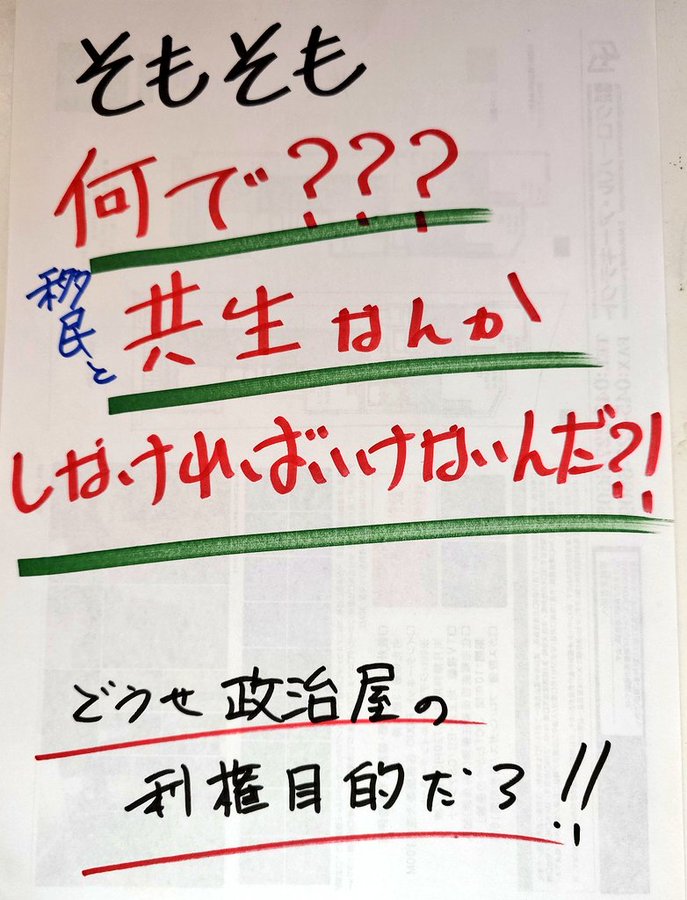 そもそも
何で???
移民と
共生なんか
しなければいけないんだ?!
どうせ政治屋の
利権目的だろ!!